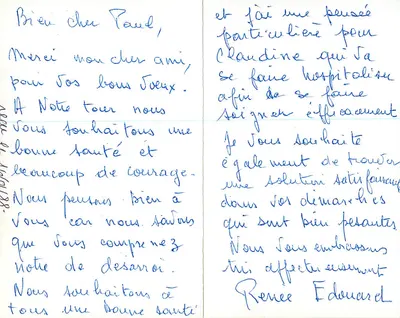 Bien cher Paul,
Merci mon cher ami,
pour vos bons voeux.
A Notre tour nous
vous souhaitons une
bonne santé et
beaucoup de courage.
Nous pensons bien à
vous car nous savons
que vous comprenez
notre de desarroi.
Nous souhaitons à
tous une bonne santé
et j'ai une pensée
particulière pour
Claudine qui va
se faire hospitaliser
afin de se faire
soigner efficacement
Je vous souhaite
également de trouver
une solution satisfaisante
dans vos démarches
qui sont bien pesantes
Nous vous embrassons
très affectueusement
Renée Edouard